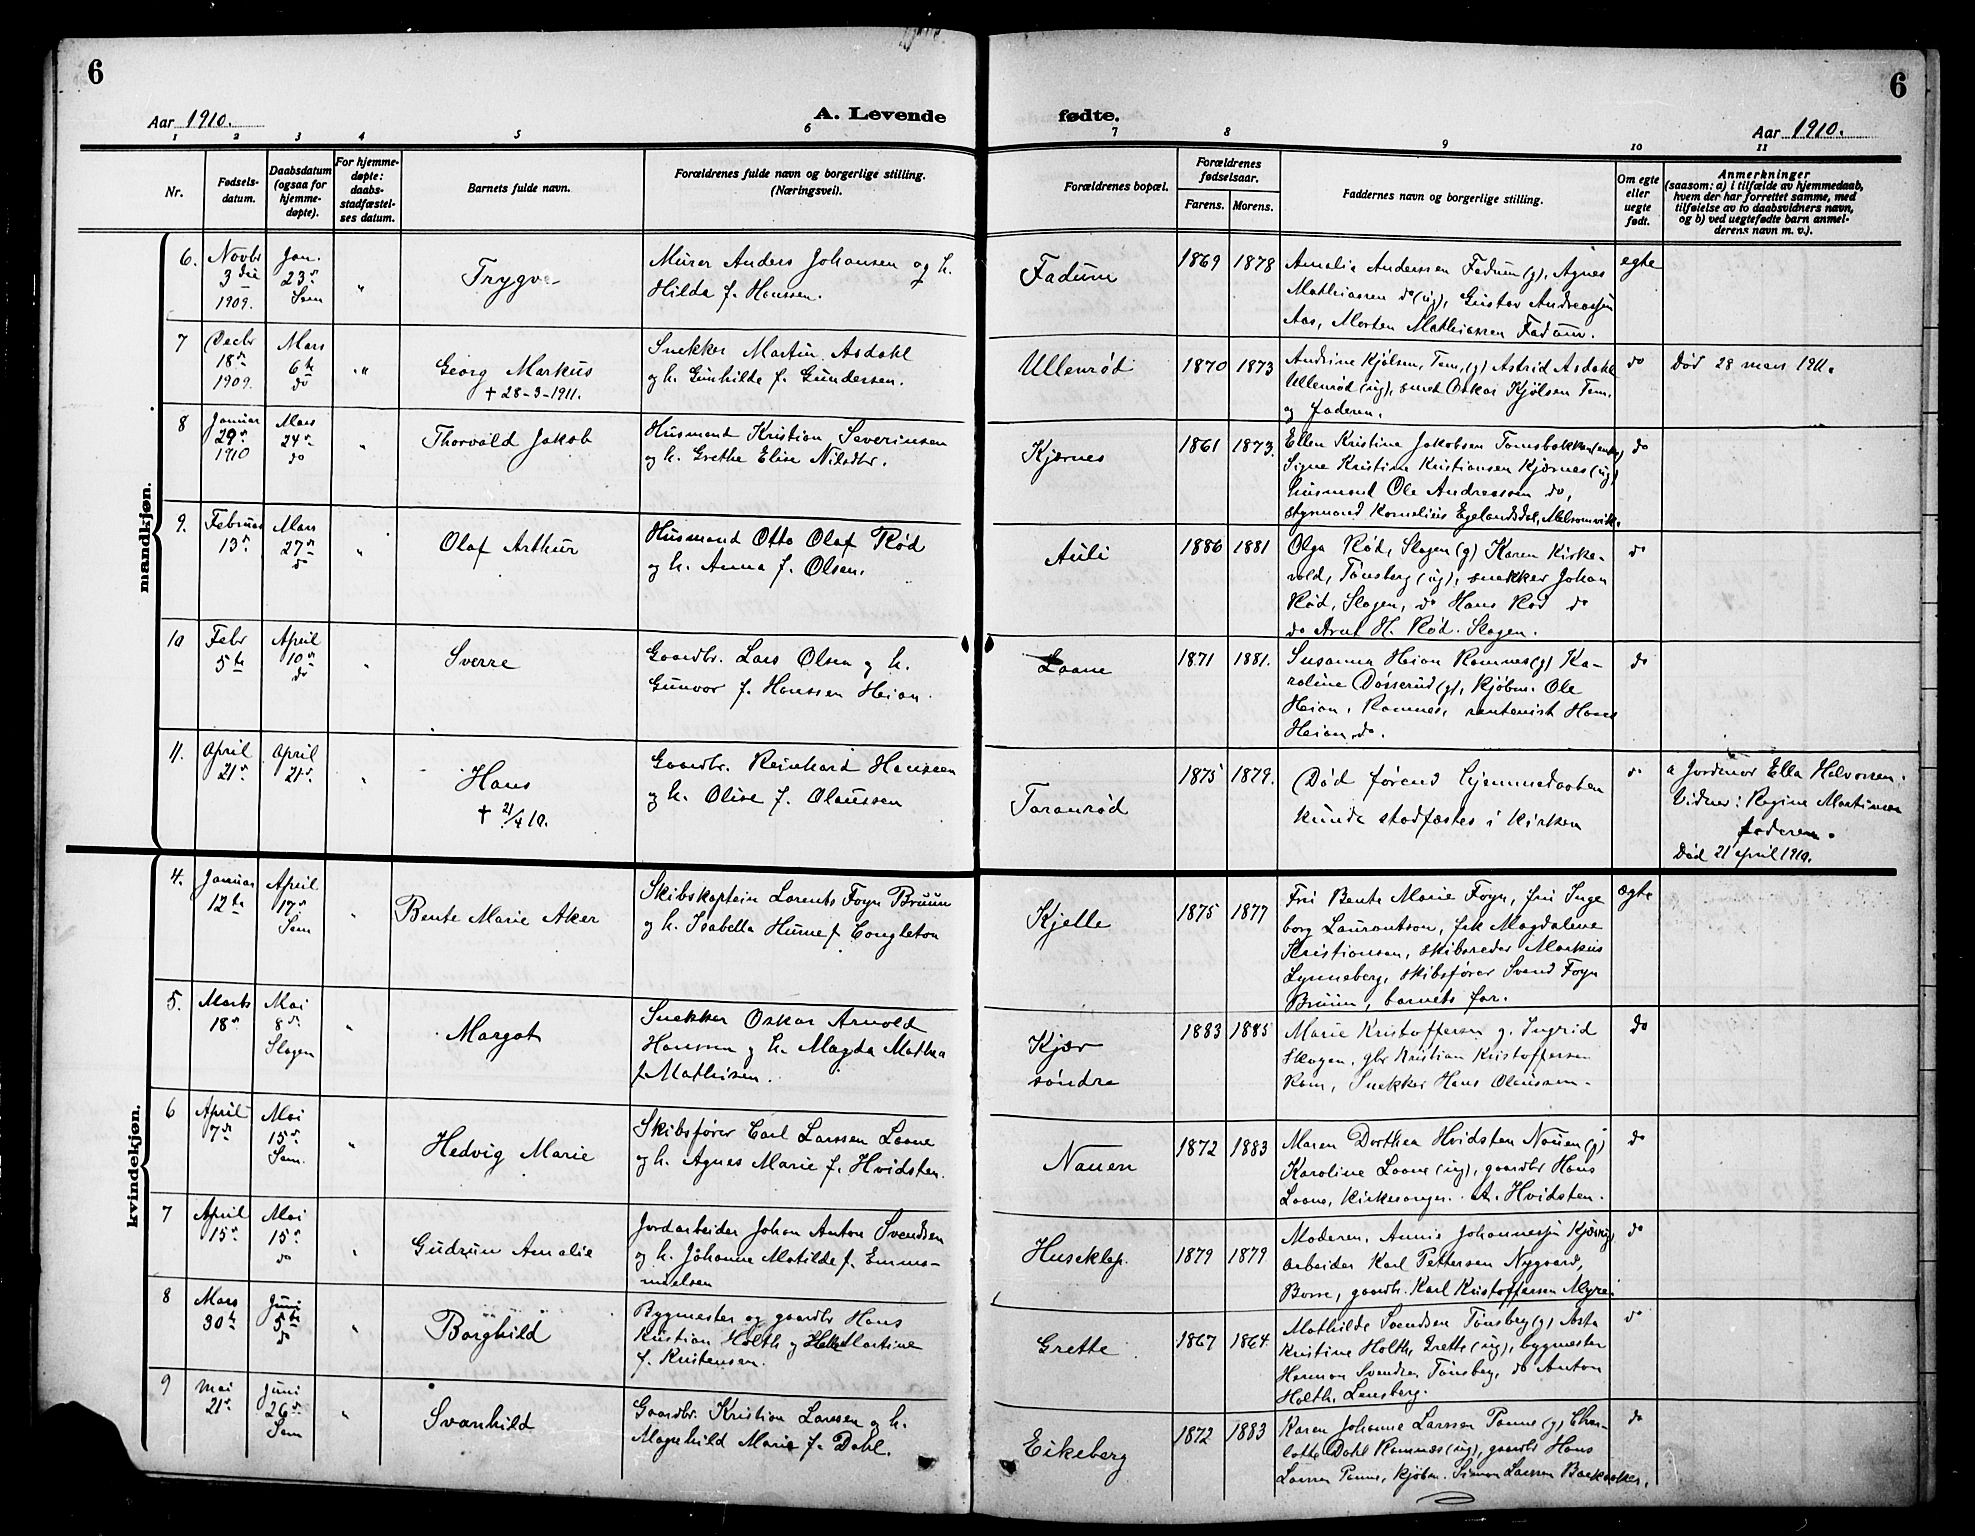 6
6
Aar 1910.
A. Levende
fødte.
Aar 1910.
1 2 3 4 5 6 7 8 9 10 11
Nr.
Fødsels-
datum.
Daabsdatum
(ogsaa for
hjemme-
døpte).
For hjemme-
døpte:
daabs-
stadfæstel-
ses datum.
Barnets fulde navn.
Forældrenes fulde navn og borgerlige stilling.
(Næringsvei).
Forældrenes bopæl.
Forældrenes
fødselsaar.
Farens. Morens.
Faddernes navn og borgerlige stilling.
Om egte
eller
uegte
født.
Anmerkninger
(saasom: a) i tilfælde av hjemmedaab,
hvem der har forrettet samme, med
tilføielse av to daabsvidners navn,
og b) ved uegtefødte barn anmel-
derens navn m. v.).
mandkjøn.
6.
Novbr
3die
1909.
Jan.
23de
Sem
"
Trygve
Murer Anders Johansen og h.
Hilda f. Hanssen.
Fadum
1869 1878
Amalie Anderssen Fadum (g), Agnes
Mathiassen do (ug), Gustav Andreassen
Aas, Morten Mathiassen Fadum.
egte
7
Decbr
18de
1909.
Mars
6te
do
"
Georg Markus
† 28-3-1911.
Snekker Martin Asdahl
og h. Gunhilde f. Gundersen.
Ullenrød
1870 1873
Andrine Kjølsen, Tem, (g) Astrid Asdahl
Ullenrød (ug), smed Oskar Kjølsen Tem.
og faderen.
do
Død 28 mars 1911.
8
Januar
29de
1910
Mars
24de
do
"
Thorvald Jakob
Husmand Kristian Severinsen
og h. Grethe Elise Nilsdtr.
Kjærnes
1861 1873.
Ellen Kristine Jakobsen Tomsbakken (enke)
Signe Kristine Kristiansen Kjærnes (ug)
husmand Ole Andreassen do,
styrmand Kornelius Egelandsdal, Melsomvik.
do
9.
Februar
13de
Mars
27de
do
"
Olaf Arthur
Husmand Otto Olaf Rød
og h. Anna f. Olsen.
Auli
1886 1881
Olga Rød, Slagen (g) Karen Kirke-
vold, Tønsberg (ug), snekker Johan
Rød, Slagen, do Hans Rød do
do Arnt H. Rød. Slagen.
do
10
Febr
5te
April
10de
do
"
Sverre
Gaardbr. Lars Olsen og h.
Gunvor f. Hanssen Heian.
Laane
1871 1881.
Susanna Heian Ramnes (g) Ka-
roline Døsserud (g), kjøbm. Ole
Heian, Ramnes, rentenist Hans
Heian do.
do
11.
April
21de
April
21de.
"
Hans
† 21/4 10.
Gaardbr. Reinhard Hanssen
og h. Olise f. Olaussen
Taranrød
1875 1879.
Død førend hjemmedaaben
kunde stadfæstes i kirken
do
a Jordmor Ella Halvorsen.
Vidner: Regine Martinsen
faderen.
Død 21 april 1910.
kvindekjøn.
4.
Januar
12te
April
17de
Sem
"
Bente Marie Aker
Skibskaptein Lorents Foyn Bruun
og h. Isabella Hume f. Congleton
Kjelle
1875 1877
Fru Bente Marie Foyn, fru Inge
borg Laurantson, frk Magdalene
Kristiansen, skibsreder Markus
Lynneberg, skibsfører Svend Foyn
Bruun, barnets far.
egte
5.
Marts
18de
Mai
8de
Slagen
"
Margot
Snekker Oskar Arnold
Hansen og h. Magda Mathea
f. Mathisen.
Kjær
søndre
1883 1885
Marie Kristoffersen g. Ingrid
Skogen, gbr Kristian Kristoffersen
Rom, Snekker Hans Olaussen.
do
6
April
7de
Mai
15de
Sem.
"
Hedvig Marie
Skibsfører Carl Larssen Laane
og h. Agnes Marie f. Hvidsten.
Nauen
1872 1883
Maren Dorthea Hvidsten Nauen (g)
Karoline Laane (ug), gaardbr Hans
Laane, kirkesanger. A. Hvidsten.
do
7
April
15de
Mai
15de
do
"
Gudrun Amalie
Jordarbeider Johan Anton Svendsen
og h. Johanne Matilde f. Emma-
nuelsen
Huseklep.
1879 1879
Moderen, Annie Johannessen
arbeider Karl Pettersen Nygaard,
Borre, gaardb. Karl Kristoffersen Myre
do
8
Mars
30te
Juni
5te
do
"
Borghild
Bygmester og gaardbr Hans
Kristian Holth og Helle Martine
f. Kristensen.
Grette
1867 1864.
Mathilde Svendsen Tønsberg (g) Asta
Kristine Holth, Grette (ug), bygmester
Herman Svendsen Tønsberg, do Anton
Holth, Lensberg.
do
9
Mai
21de
Juni
26de
Sem
"
Svanhild
Gaardbr. Kristian Larssen og h.
Magnhild Marie f. Dahl.
Eikeberg
1872 1883
Karen Johanne Larssen Tanne (g) Char-
lotte Dahl Ramnæs (ug), gaardbr Hans
Larssen Tanne, kjøbm. Simon Larssen
do